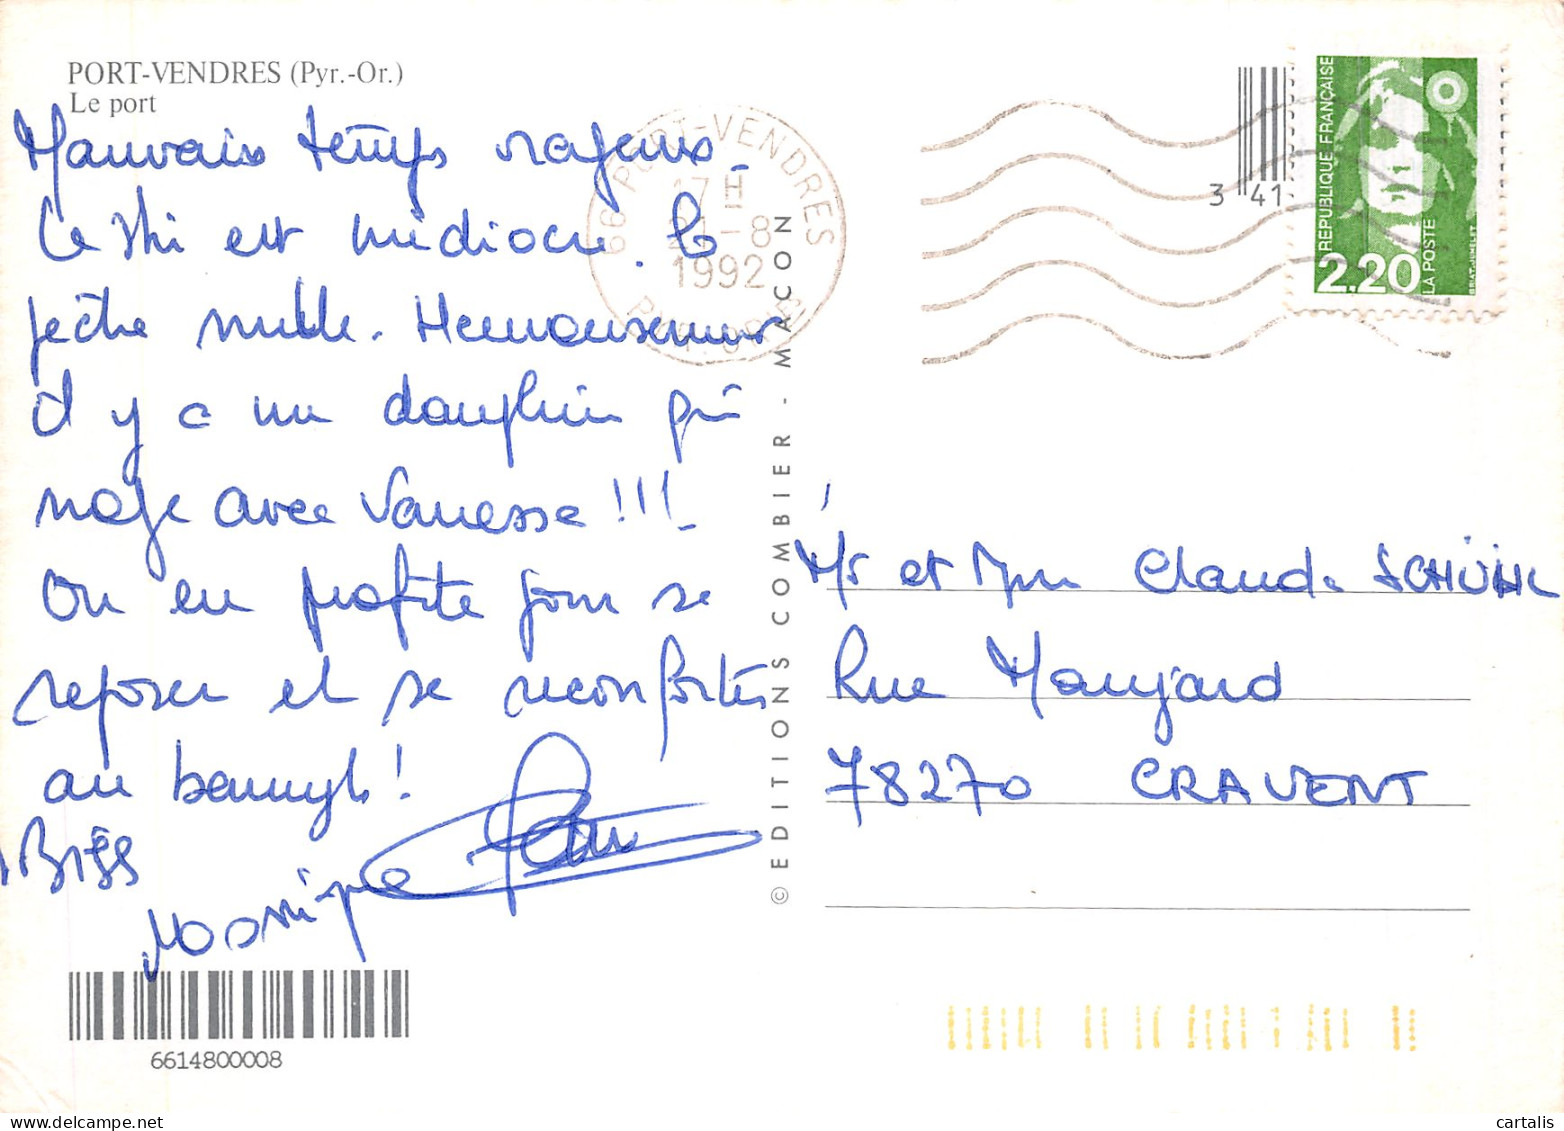 PORT-VENDRES (Pyr.-Or.)
Le port
Mauvais temps rageur
Le ski est médiocre. La
pêche nulle. Heureusement
il y a un dauphin qui
nage avec Vanessa !!!
On en profite pour se
reposer et se réconforter
au banyuls !
BISES
Monique
66 PORT-VENDRES
17 H
21-8
1992
PYR.-ORIE
3 41
REPUBLIQUE FRANÇAISE
2.20
LA POSTE
BRIAT-JUMELET
© EDITIONS COMBIER - MACON
Mr et Mme Claude SCHÜHL
Rue Manjard
78270 CRAVENT
6614800008
cartalis
www.delcampe.net